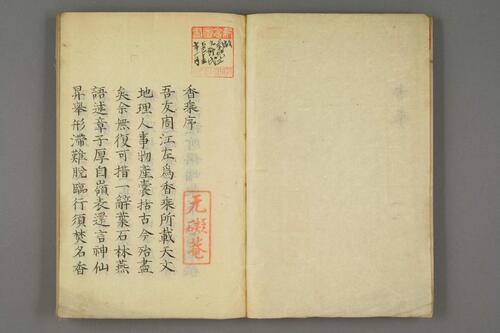 香乘序
吾友周江左爲香乘所載天文
地理人事物產囊括古今殆盡
矣余無復可措一辭葉石林燕
語述章子厚自嶺表還言神仙
昇舉形滯難脫臨行須焚名香
无礙菴